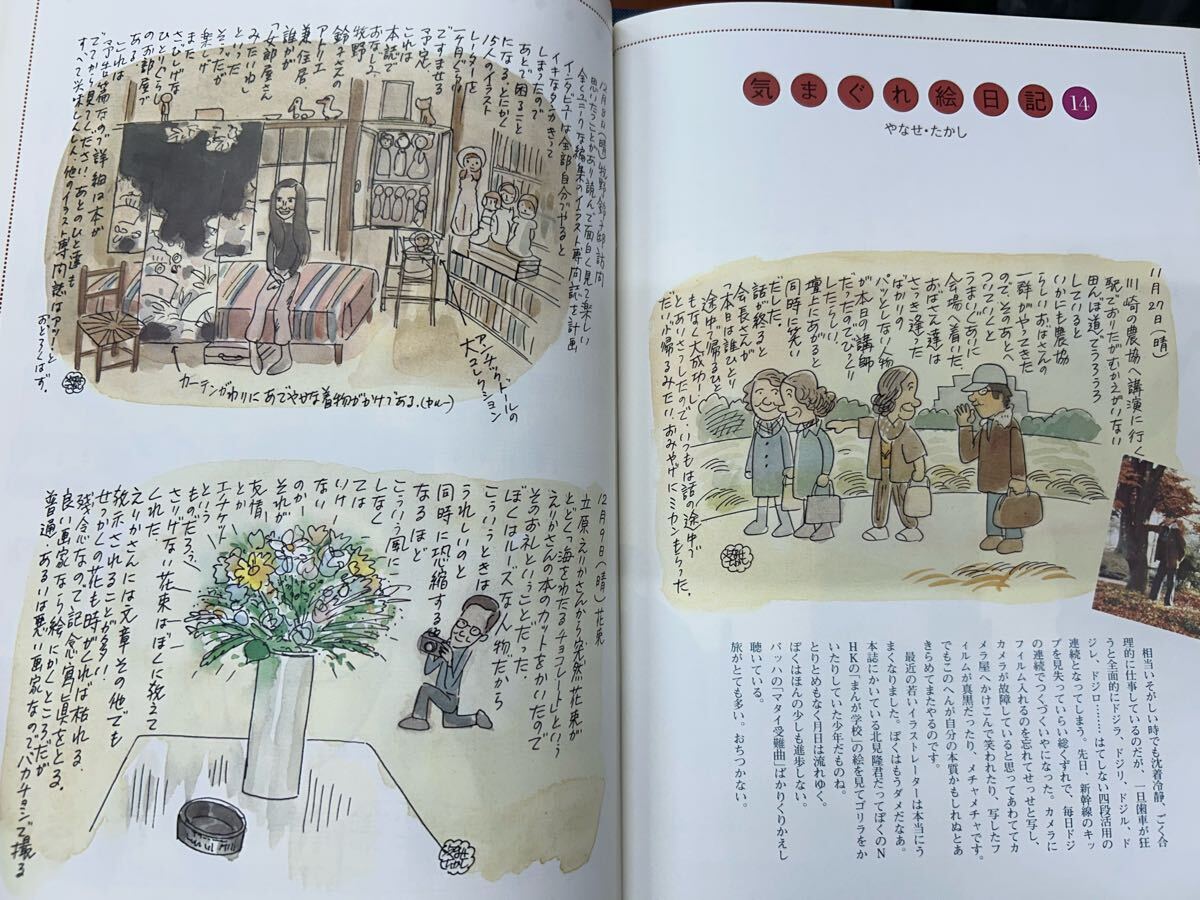 気まぐれ絵日記 14
やなせ・たかし
11月27日(晴)
川崎の農協へ講演に行く
駅でおりたがむかえがいない
田んぼ道でうろうろ
していると
いかにも農協
らしいおばさんの
一群がやってきた
のでそのあとへ
ついていくと
うまいぐあいに
会場へ着いた。
おばさん達は
さっき逢った
ばかりの
パッとしない人物
が本日の講師
だったのでびっくり
したらしい。
壇上にあがると
同時に笑い
だした。
話が終ると
会長さんが
「本日は誰ひとり
途中で帰るひと
もなく大成功でし
た」とあいさつしたので、いつもは話の途中で
帰るみたい。おみやげにミカンもらった。
相当いそがしい時でも沈着冷静、ごく合
理的に仕事しているのだが、一旦歯車が狂
うと全面的にドジラ、ドジリ、ドジル、ド
ジレ、ドジロ……はてしない四段活用の
連続となってしまう。先日、新幹線のキッ
プを見失っていらい総くずれで、毎日ドジ
の連続でつくづくいやになった。カメラに
フィルム入れるのを忘れてせっせと写し、
カメラが故障していると思ってあわててカ
メラ屋へかけこんで笑われたり、写したフ
ィルムが真黒だったり、メチャメチャです。
でもこのへんが自分の本質かもしれぬとあ
きらめてまたやるのです。
最近の若いイラストレーターは本当にう
まくなりました。ぼくはもうダメだなあ。
本誌にかいている北見隆君だってぼくのN
HKの「まんが学校」の絵を見てゴリラをか
いたりしていた少年だものね。
とりとめもなく月日は流れゆく。
ぼくはほんの少しも進歩しない。
バッハの「マタイ受難曲」ばかりくりかえし
聴いている。
旅がとても多い。おちつかない。
12月8日(晴)牧野鈴子邸訪問
思いたつことがあり読んで面白く見て楽しい
全くユニークな編集のイラスト専門誌を計画
インタビューは全部自分でやると
イキなタンカきって
しまったので
あとで困ること
になる。とにかく
15人のイラスト
レーターを
一ケ月ぐらい
ですませる
予定。
これは
本誌で
おなじみ
牧野
鈴子さんの
アトリエ
兼住居、
誰かが
「女郎屋さん
みたい」ねし
といった
そうだが
楽しげ
また
さびしげな
ひとりぐらし
のお部屋で
ある。
これは
予告篇なので詳細は本が
でてから見てください。あとのひと達も
すべて興味しんしん、他のイラスト専門誌はアッと
おどろくはず。
アンチックドールの
大コレクション
カーテンがわりにあでやかな着物がかけてある。
12月9日(晴)花束
立原えりかさんから突然花束が
とどく「海をわたるチョコレート」という
えりかさんの本のカットをかいたので
そのお礼ということだった。
ぼくはルーズな人物だから
こういうときは
うれしいのと
同時に恐縮する。
なるほど
こういう風に
しなく
ては
いけ
ない
のかー
それが
友情
とか
エチケット
という
ものだろう。
さりげない花束はぼくに教えて
くれた。
えりかさんには文章その他でも
教示されることが多い
せっかくの花も時がくれば枯れる。
残念なので記念写真をとる。
良い画家なら絵にかくところだが
普通、あるいは悪い画家なのでバカチョンで撮る